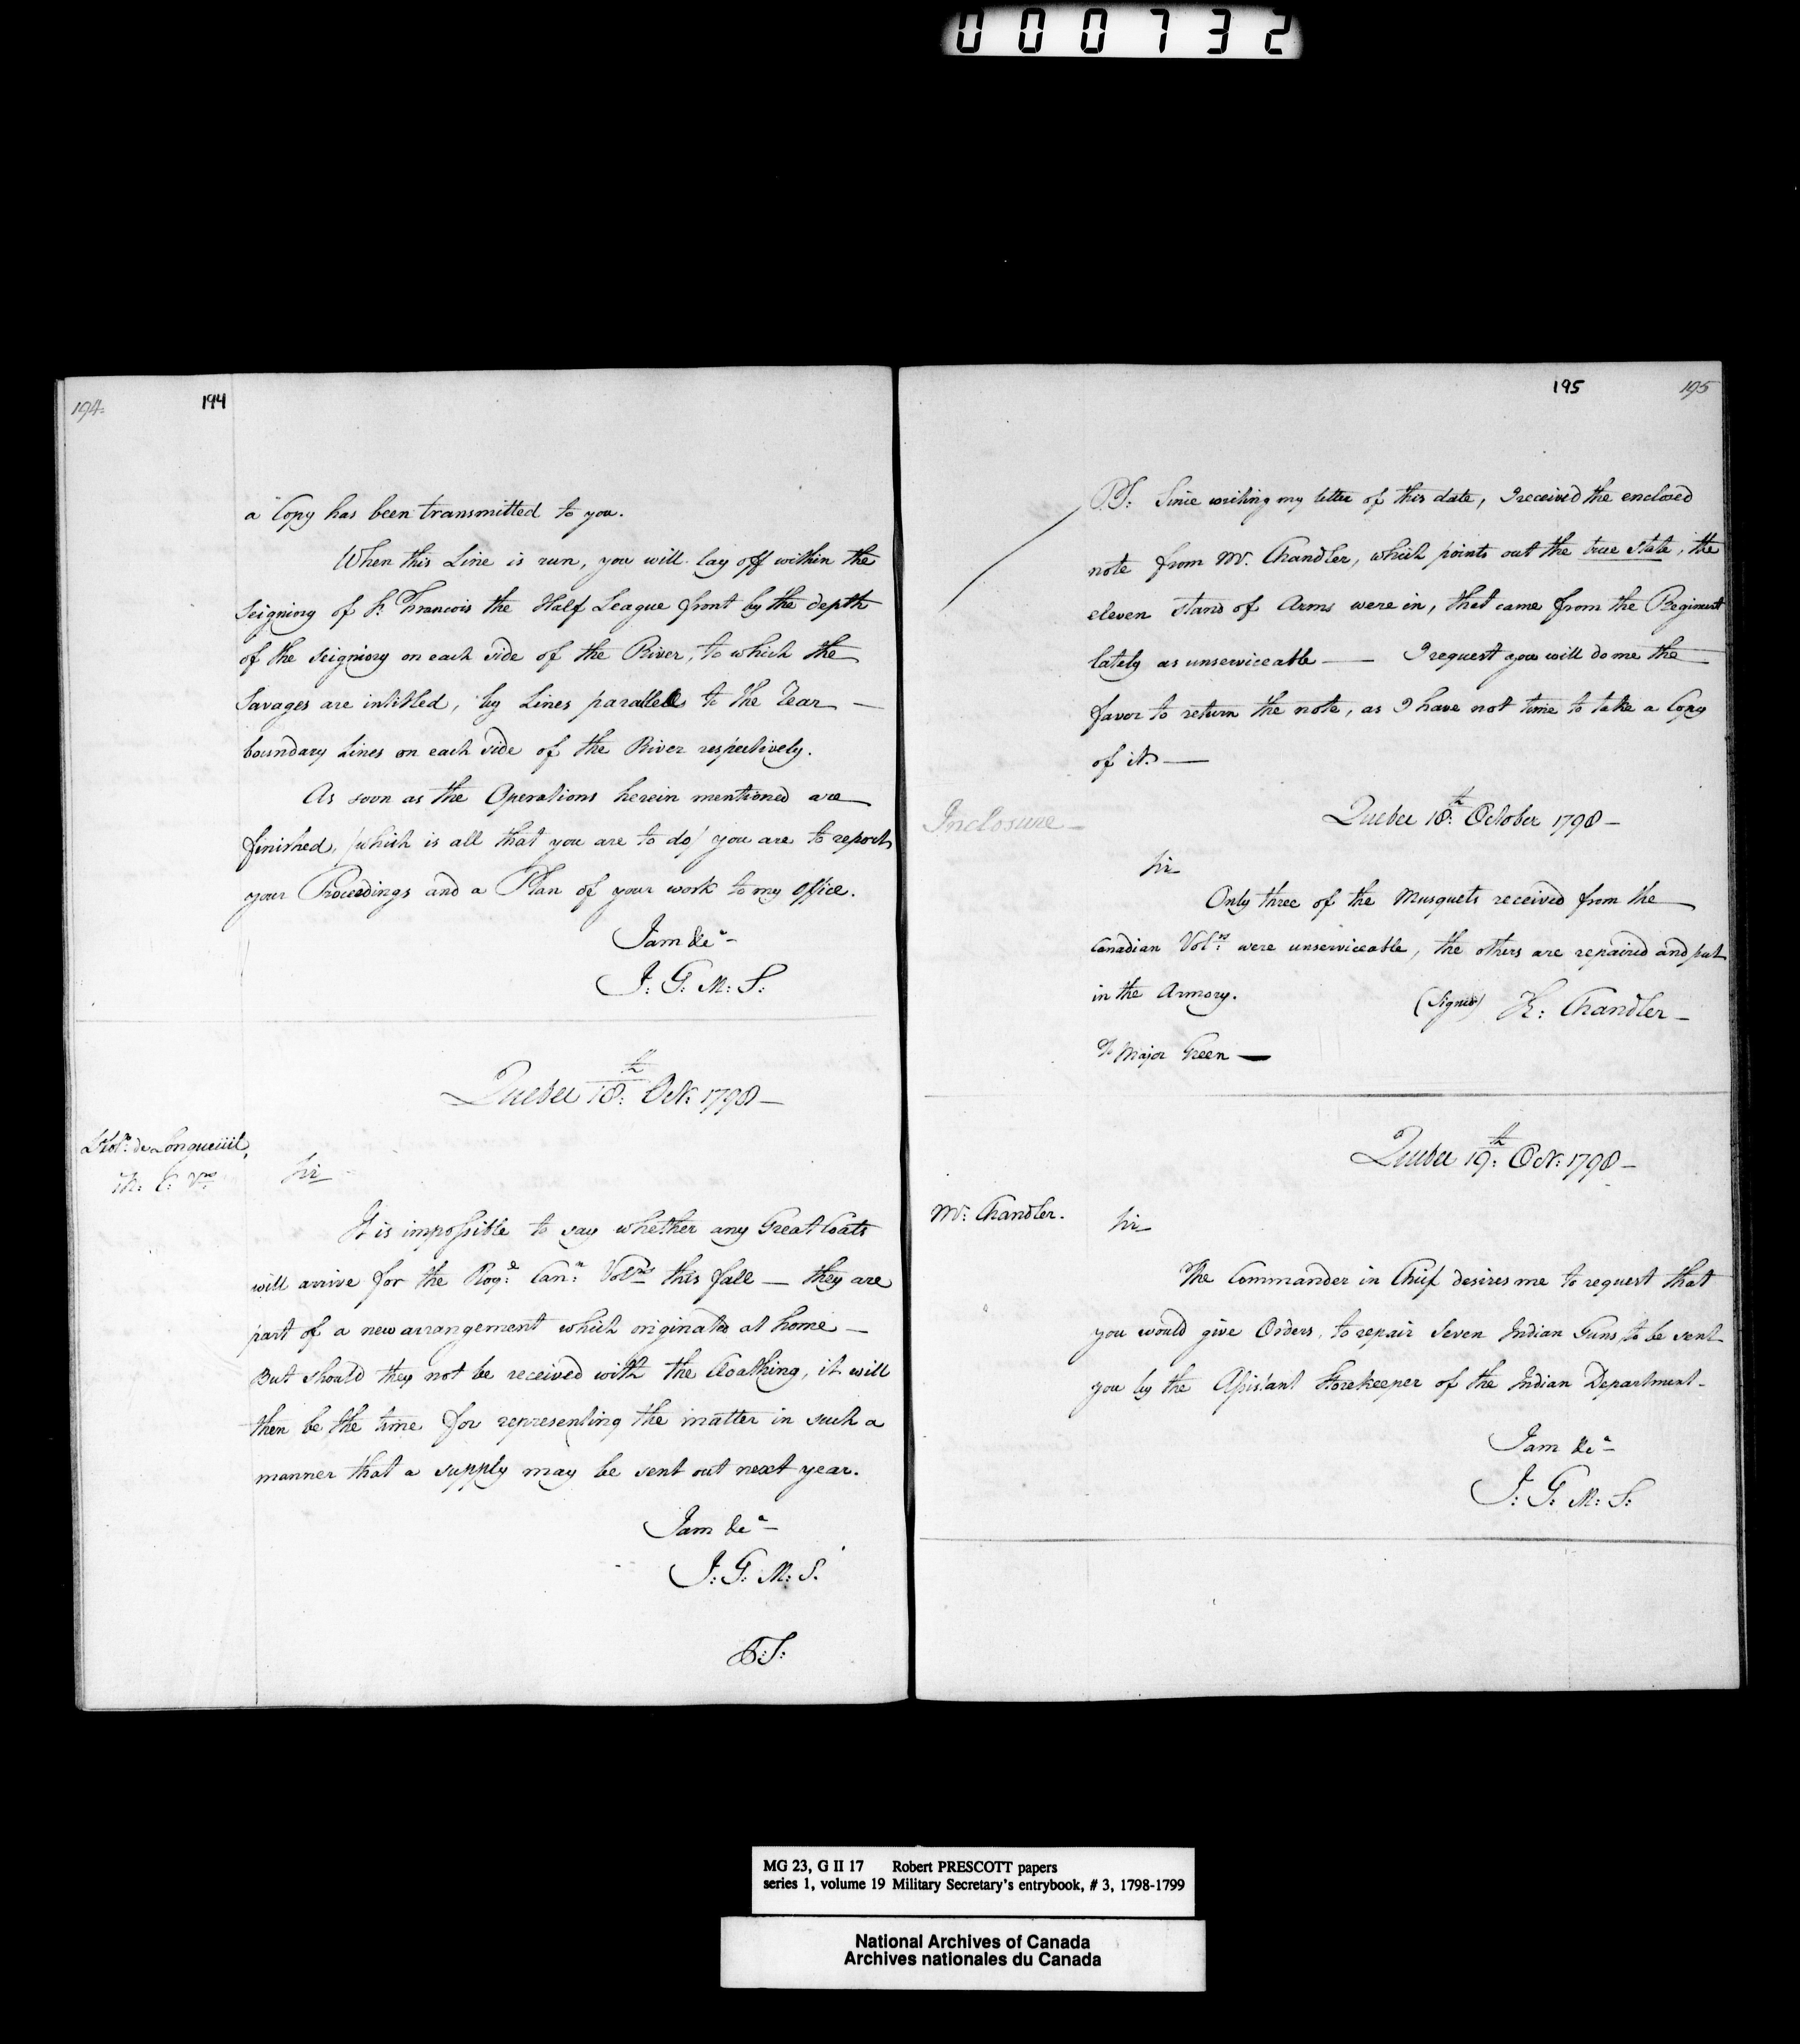 000732
194. 194
a Copy has been transmitted to you.
When this Line is run, you will lay off within the
Seigniory of St. Francois the Half League front by the depth
of the Seigniory on each side of the River, to which the
Savages are intitled, by Lines parallel to the Rear —
boundary Lines on each side of the River respectively.
As soon as the Operations herein mentioned are
finished, (which is all that you are to do) you are to report
your Proceedings and a Plan of your work to my Office.
I am &ca—
J: G: M: S:
Quebec 18th: Octr: 1798—
Lt Col: de Longueuiil,
R: C: Vrs
Sir
It is impossible to say whether any Great Coats
will arrive for the Roy:l Can:n Volrs this fall — they are
part of a new arrangement which originates at home —
But should they not be received with the Cloathing, it will
then be the time for representing the matter in such a
manner that a supply may be sent out next year.
I am &ca—
J: G: M: S.
P:S:
195 195
P.S: Since writing my letter of this date, I received the enclosed
note from Mr. Chandler, which points out the true state, the
eleven stand of Arms were in, that came from the Regiment
lately as unserviceable — I request you will do me the
favor to return the note, as I have not time to take a Copy
of it. —
Quebec 18th: October 1798—
Inclosure—
Sir
Only three of the Musquets received from the
Canadian Vol:rs were unserviceable, the others are repaired and put
in the Armory.
(Signed) K: Chandler—
To Major Green —
Quebec 19th: Octr: 1798—
Mr: Chandler.
Sir
The Commander in Chief desires me to request that
you would give Orders, to repair Seven Indian Guns, to be sent
you by the Assistant Storekeeper of the Indian Department—
I am &ca—
J: G: M: S:
MG 23, G II 17 Robert PRESCOTT papers
series 1, volume 19 Military Secretary's entrybook, # 3, 1798-1799
National Archives of Canada
Archives nationales du Canada